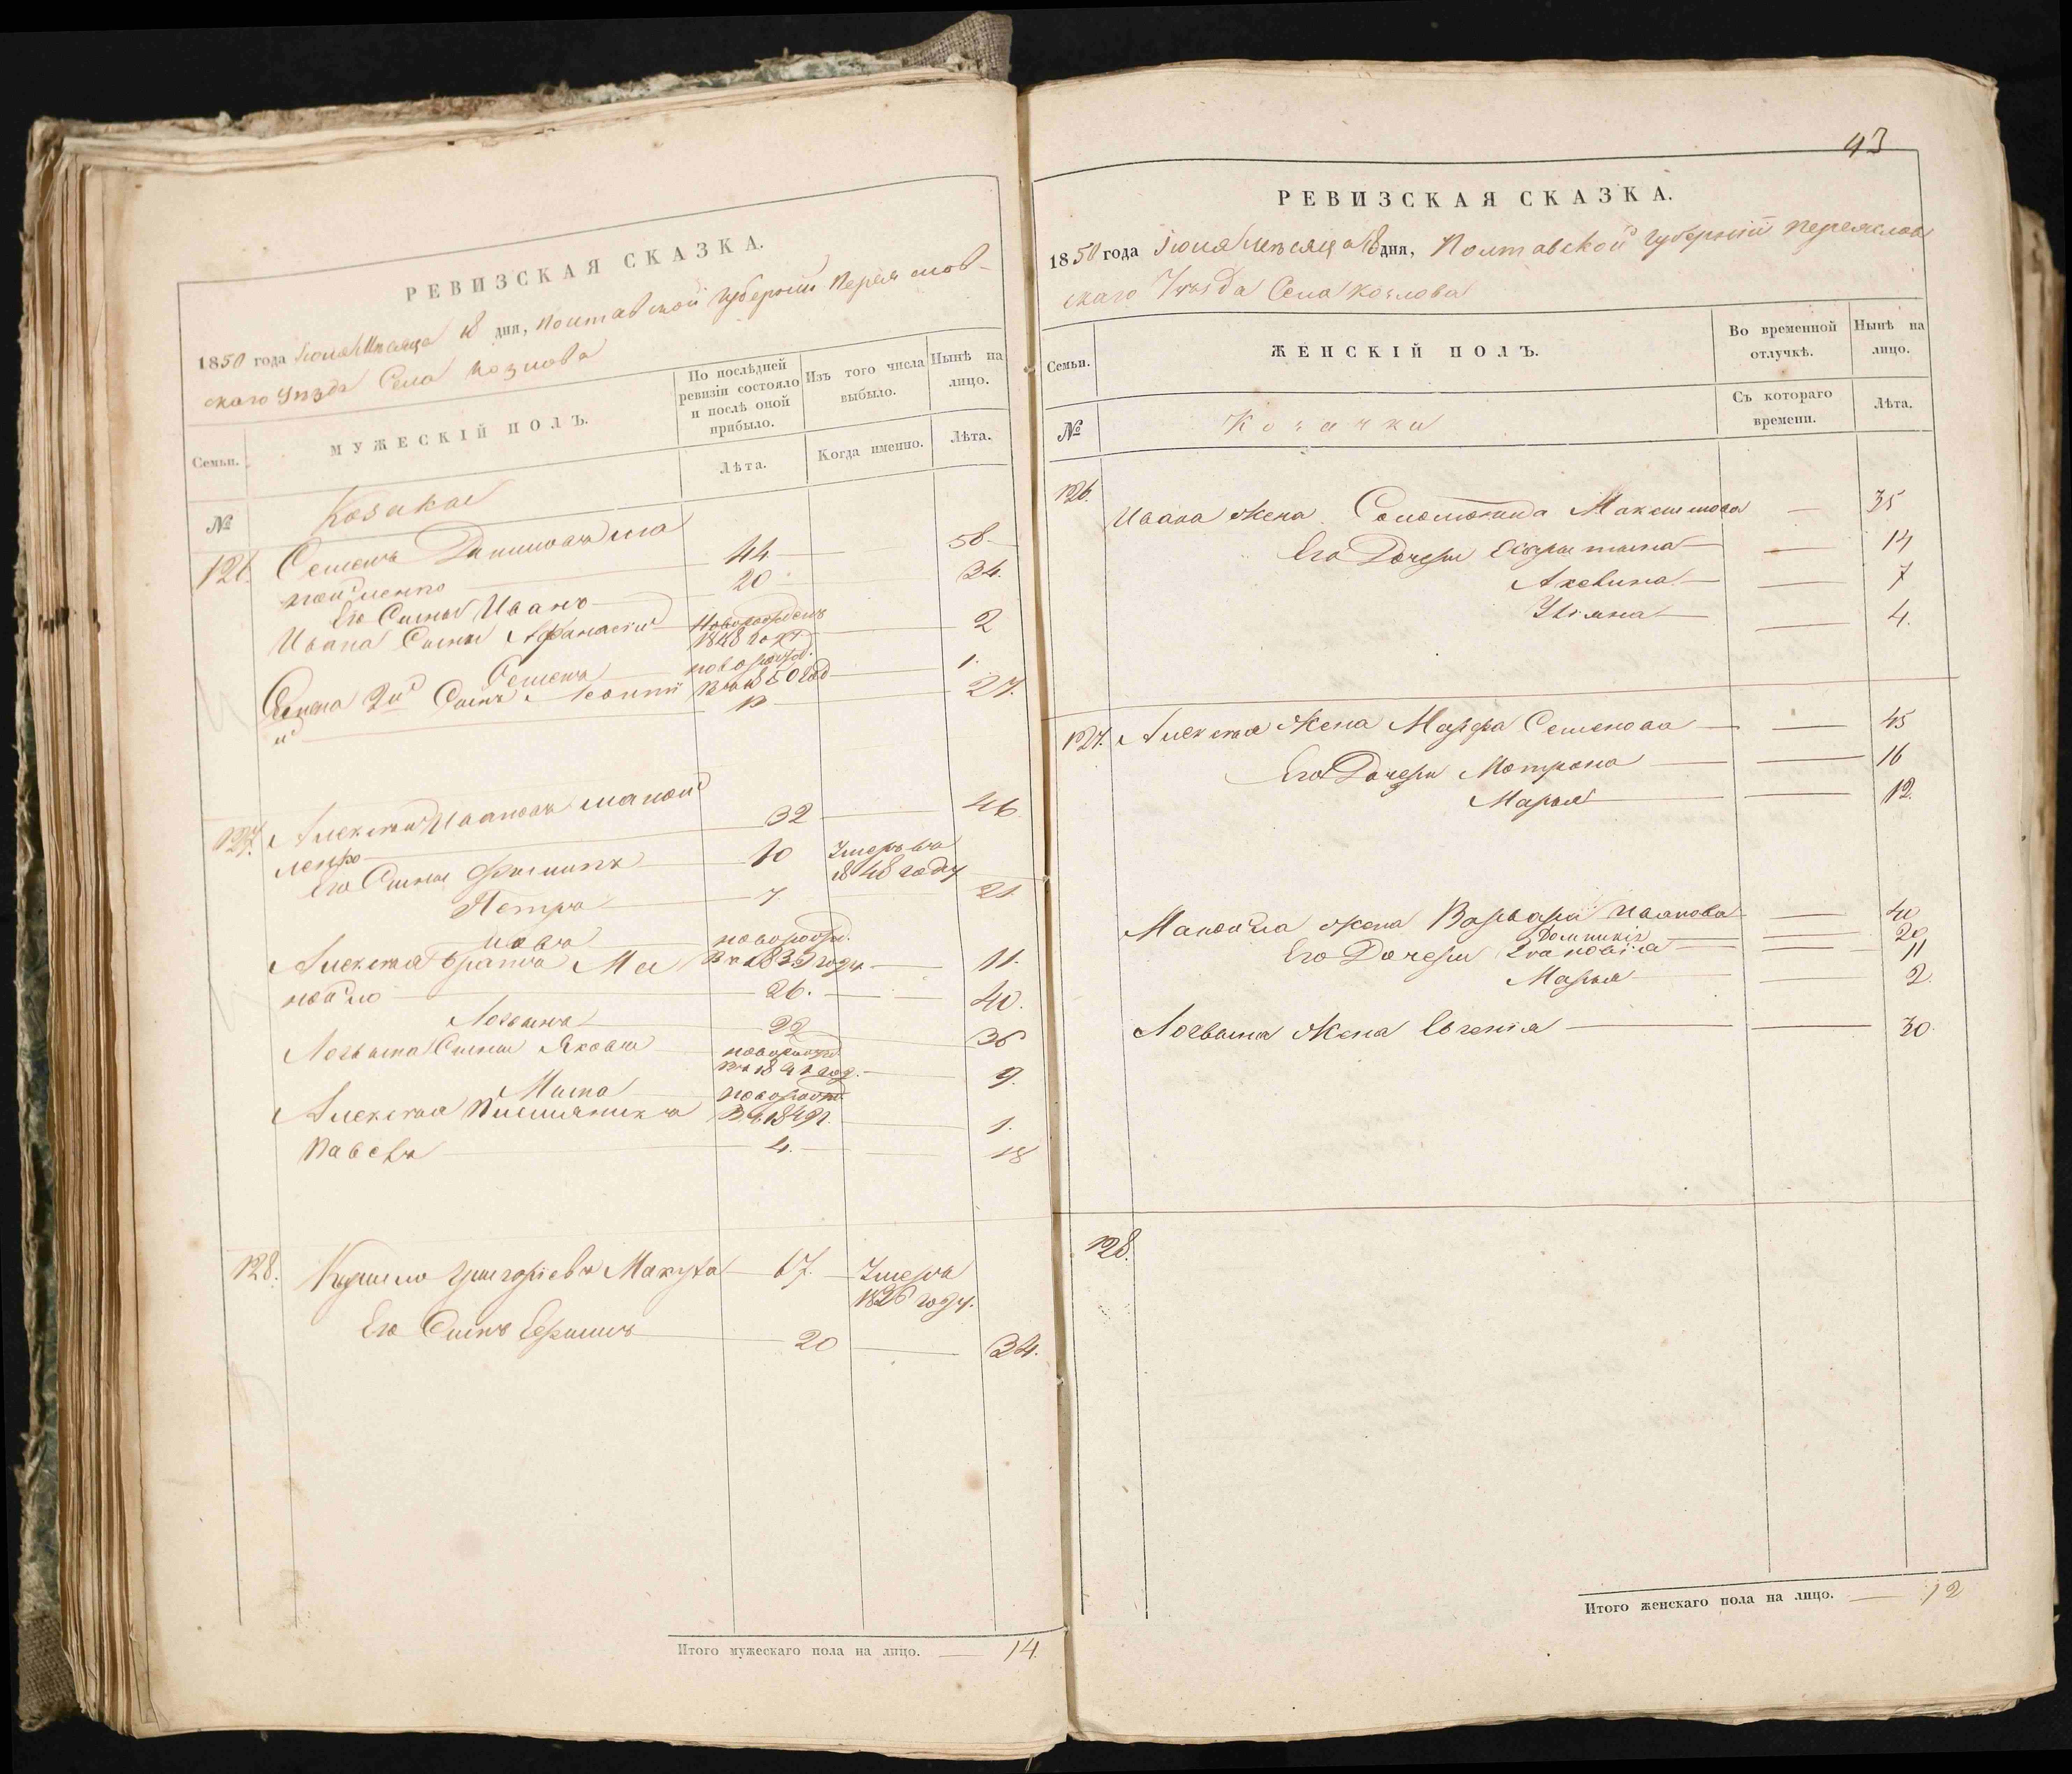 РЕВИЗСКАЯ СКАЗКА.
1850 года Іюня Мѣсяца 18 дня, Полтавской Губерніи Переяслов-
скаго Уѣзда Села Козлова
Семьи.
МУЖЕСКІЙ ПОЛЪ.
По послѣдней
ревизіи состояло
и послѣ оной
прибыло.
Изъ того числа
выбыло.
Нынѣ на
лицо.
Лѣта.
Когда именно.
Лѣта.
№
Козаки
126. Семенъ
44 — 58
Его Сынъ Иванъ — 20 — 34.
Ивана Сыны Афанасій — Новорожденъ
1848 году — 2
Семенъ — новорожд.
1850 год — 1.
Семена 2й Сынъ Леонтій
й — 27.
127. Алексѣй Ивановъ Маной
ленко — 32 — 46.
Его Сыны Филипъ — 10 Умеръ въ
1848 году
Петръ — 7 — 21
Іовъ — новорожд.
Въ 1839 году — 11.
Алексѣя братья Ма
нойло — 26. — 40.
Логвинъ — 22 — 36
Логвина Сыны Яковъ — новорожд.
въ 1841 год. — 9.
новорожд.
Въ 1849 г. — 1.
Алексѣя Племяникъ
Павелъ — 4. — 18
128. Кирило Григорьевъ Макуха — 67. — Умеръ
1836 году.
Его Сынъ Ефимъ — 20 — 34.
Итого мужескаго пола на лицо. — 14.
43
РЕВИЗСКАЯ СКАЗКА.
1850 года Іюня Мѣсяца 18 дня, Полтавской Губерніи Переяслов
скаго Уѣзда Села Козлова
Семьи.
ЖЕНСКІЙ ПОЛЪ.
Во временной
отлучкѣ.
Нынѣ на
лицо.
Съ котораго
времени.
Лѣта.
№
Козачки
126. Ивана Жена Соломонида Максимова — 35
Его Дочери — 14
Акелина — — 7
Уляна — — 4.
127. Алексѣя Жена Марфа Семенова — — 45
Его Дочери Мотрона — — 16
Марья — — 12.
Манойла жена Варвара Иванова — 40
Домникія — 20
Его Дочери — 11
Марья — — 2.
Логвина Жена Евгенія — — 30.
128.
Итого женскаго пола на лицо. — 12